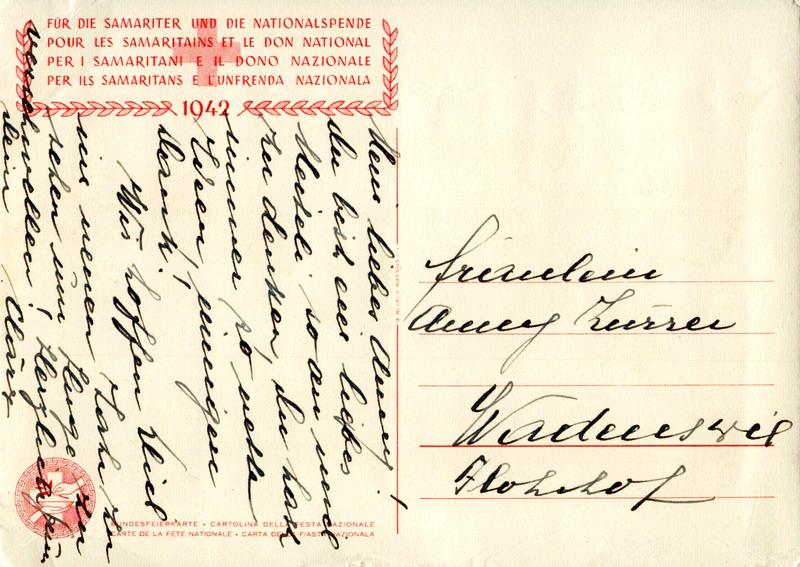 FÜR DIE SAMARITER UND DIE NATIONALSPENDE
POUR LES SAMARITAINS ET LE DON NATIONAL
PER I SAMARITANI E IL DONO NAZIONALE
PER ILS SAMARITANS E L'UNFRENDA NAZIONALA
1942
Mein liebes Anny!
du bist ein liebes
so an mich
zu denken, du hast
immer so nette
Ideen, innigen
Dank!
Wir hoffen Dich
im neuen Jahr zu
sehen um
Herzlichst
Dein Clära
Fräulein
Anny Zürrer
Wädenswil
Flohhof
BUNDESFEIERKARTE • CARTOLINA DELLA FESTA NAZIONALE
CARTE DE LA FÊTE NATIONALE • CARTA DELLA FIASTA NAZIONALA